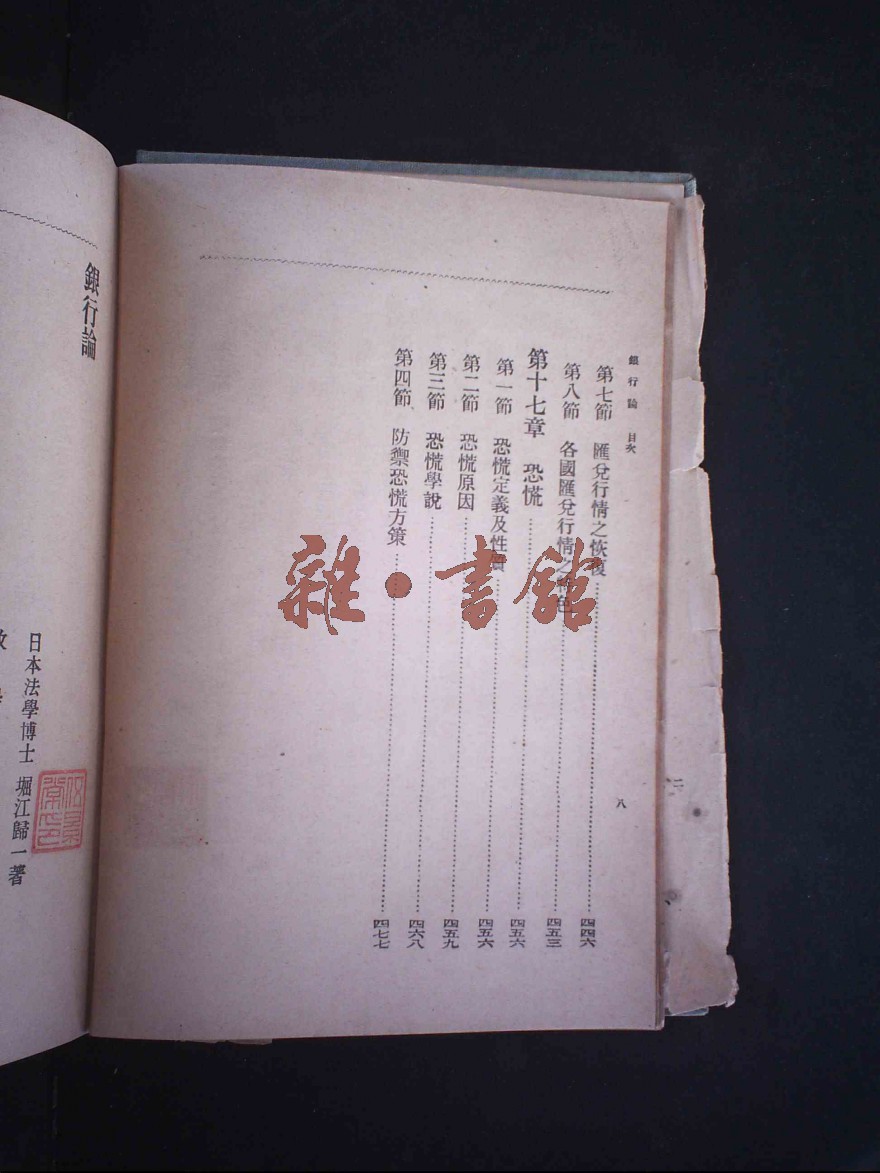 銀行論 目次
第七節 匯兌行情之恢復 四四六
第八節 各國匯兌行情之特色 四五三
第十七章 恐慌 四五六
第一節 恐慌定義及性質 四五六
第二節 恐慌原因 四五九
第三節 恐慌學說 四六八
第四節 防禦恐慌方策 四七七
八
銀行論
日本法學博士 堀江歸一著
雜·書館